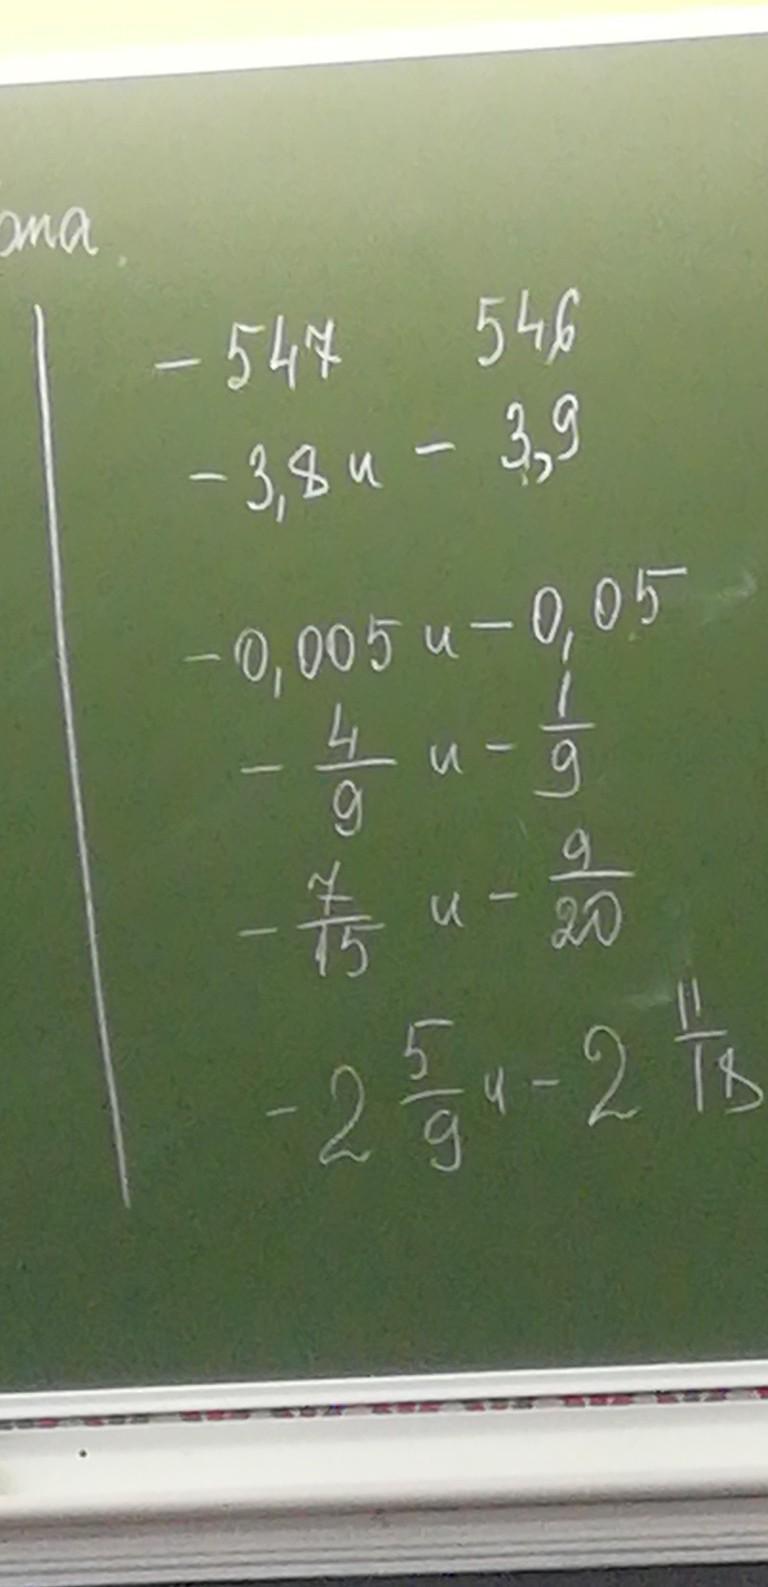 -547 546
-3,8 и -3,9
-0,005 и -0,05
-4/9 и -1/9
-7/15 и -9/20
-2 5/9 и -2 11/18